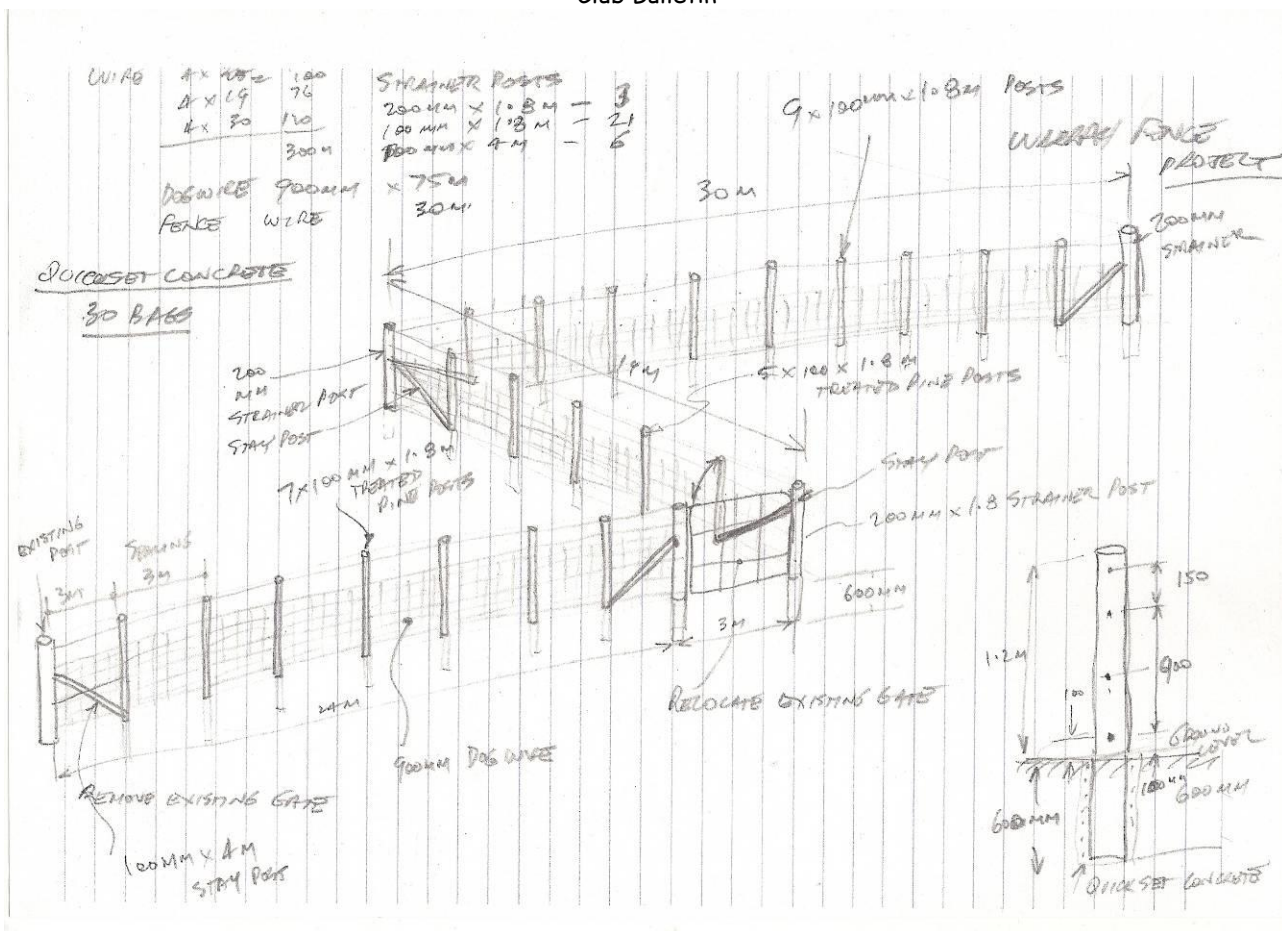 Club Bulletin
WIRE 4 x = 100
4 x 19 76
4 x 30 120
300M
STRAINER POSTS
200MM x 1.8M - 3
100MM x 1.8M - 21
100MM x 4M - 6
DOGWIRE 900MM x 75M
FENCE WIRE 30M.
9 x 100MM x 1.8M POSTS
FENCE
PROJECT
30M
200MM
STRAINER
QUICKSET CONCRETE
30 BAGS
200
MM
STRAINER POST
STAY POST
19M
5 x 100 x 1.8M
TREATED PINE POSTS
7 x 100MM x 1.8M
TREATED
PINE POSTS
STAY POST
200MM x 1.8 STRAINER POST
EXISTING
POST
SPACING
3M
3M
600MM
3M
RELOCATE EXISTING GATE
24M
900MM DOG WIRE
REMOVE EXISTING GATE
100MM x 4M
STAY POST
150
1.2M
900
100
GROUND
LEVEL
100MM
600MM
600MM
QUICKSET CONCRETE